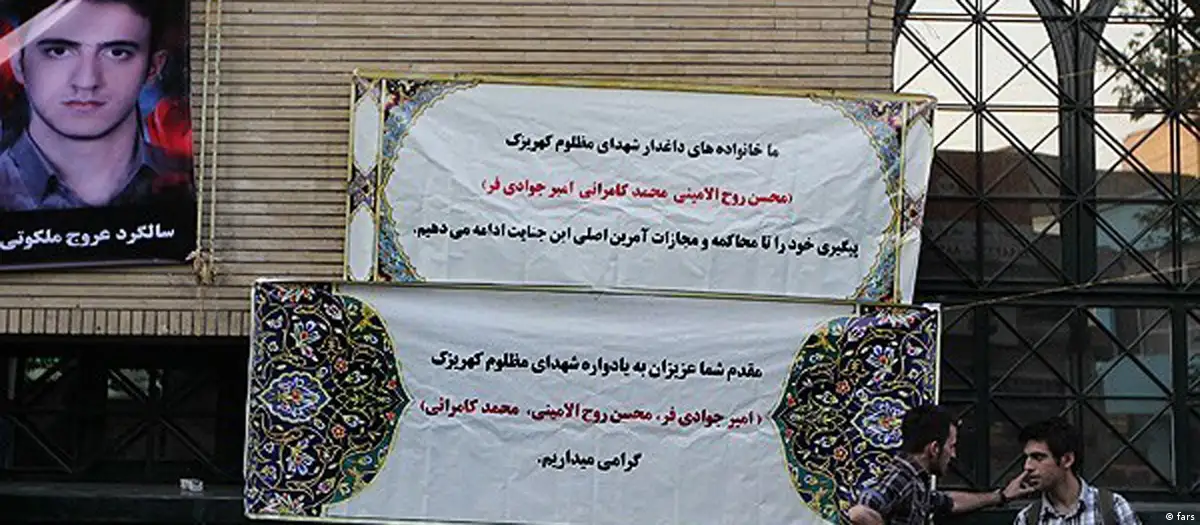 سالگرد عروج ملکوتی
ما خانواده های داغدار شهدای مظلوم کهریزک
(محسن روح الامینی محمد کامرانی امیر جوادی فر)
پیگیری خود را تا محاکمه و مجازات آمرین اصلی این جنایت ادامه می دهیم.
مقدم شما عزیزان به یادواره شهدای مظلوم کهریزک
(امیر جوادی فر، محسن روح الامینی، محمد کامرانی)
گرامی میداریم.
© fars